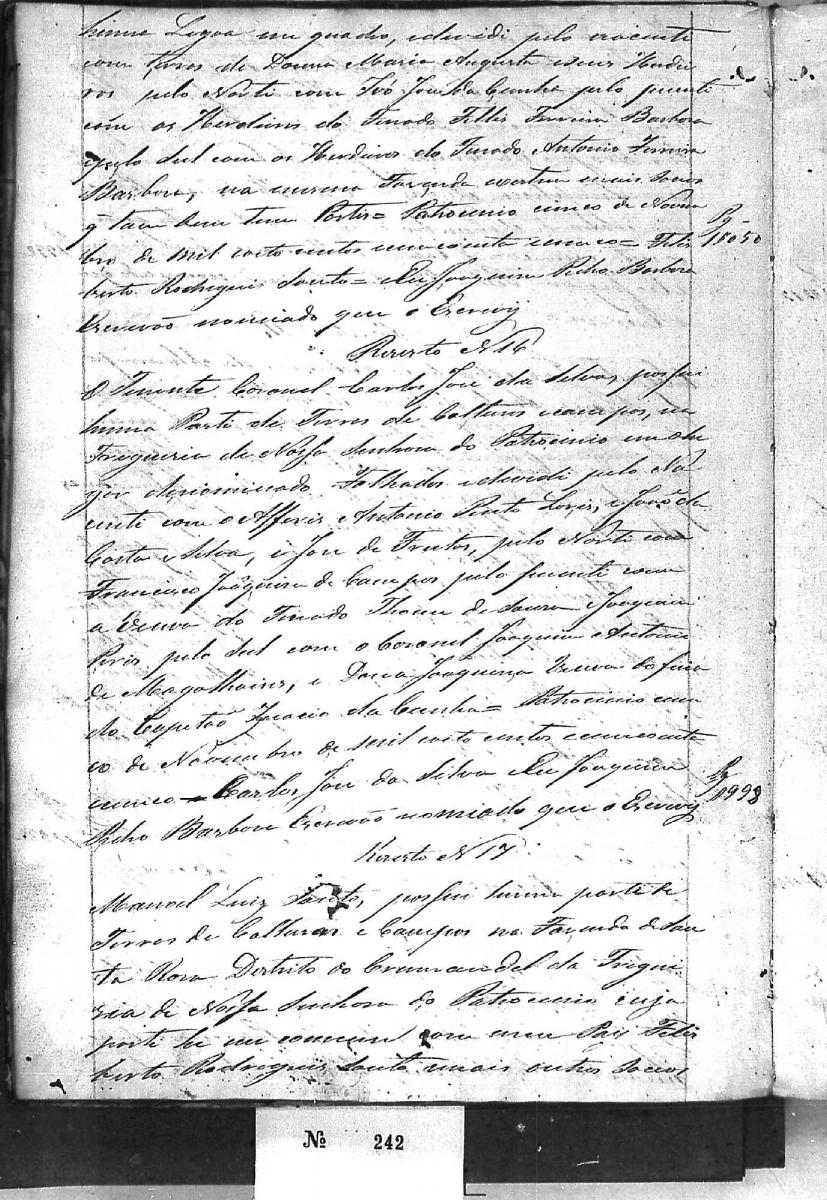 huma Legoa em quadro, e devidi pelo nacente
com terras de Donna Maria Augusta e seus Herdei
ros pelo Norti com Ivo José da Cunha pelo puenti
com os Herdeiros do Finado Fellis Ferreira Barboza
e pelo Sul com os Herdeiros do Finado Antonio Ferreira
Barboza, na mesma Fazenda mais Socios
q tam bem tem Partis = Patrocinio cinco de Novem
bro de mil oito centos cincoenta e cinco = Felis
berto Rodrigues Souto = Eu Joaquim Pedro Barboza
Escrivão nomiado que o Escrevy
Pg
18050
Rezisto N 16
O Tenente Coronel Carlos José da Silva, possui
huma Parti de Terras de Colturas e campos, na
Freguezia de Nossa Senhora do Patrocinio no Lu
gar denominado Folhados e devidi pelo Na
centi com o Alferis Antonio Pinto, e João da
Costa e Silva, e José de Freitas, pelo Norti com
Francisco Joaquim de Campos pelo puenti com
a Veuva do Finado Thome de Souza e Joaquim
Piris pelo Sul com o Coronel Joaquim Antonio
de Magalhains, e Dona Joaquina Veuva do fina
do Capitão Ignacio da Cunha = Patrocinio cin
co de Novembro de mil oito centos cincoenta e
cinco = Carlos José da Silva Eu Joaquim
Pedro Barboza Escrivão nomiado que o Escrevy
Pg
1998
Rezisto N 17
Manoel Luiz Souto, possui huma parte de
Terras de Colturas e Campos na Fazenda de San
ta Roza Destrito do Cromandel da Fregue
zia de Nossa Senhora do Patrocinio cuja
parte he em comum com meu Pai Felis
berto Rodrigues Souto e mais outros Socios
Nº 242